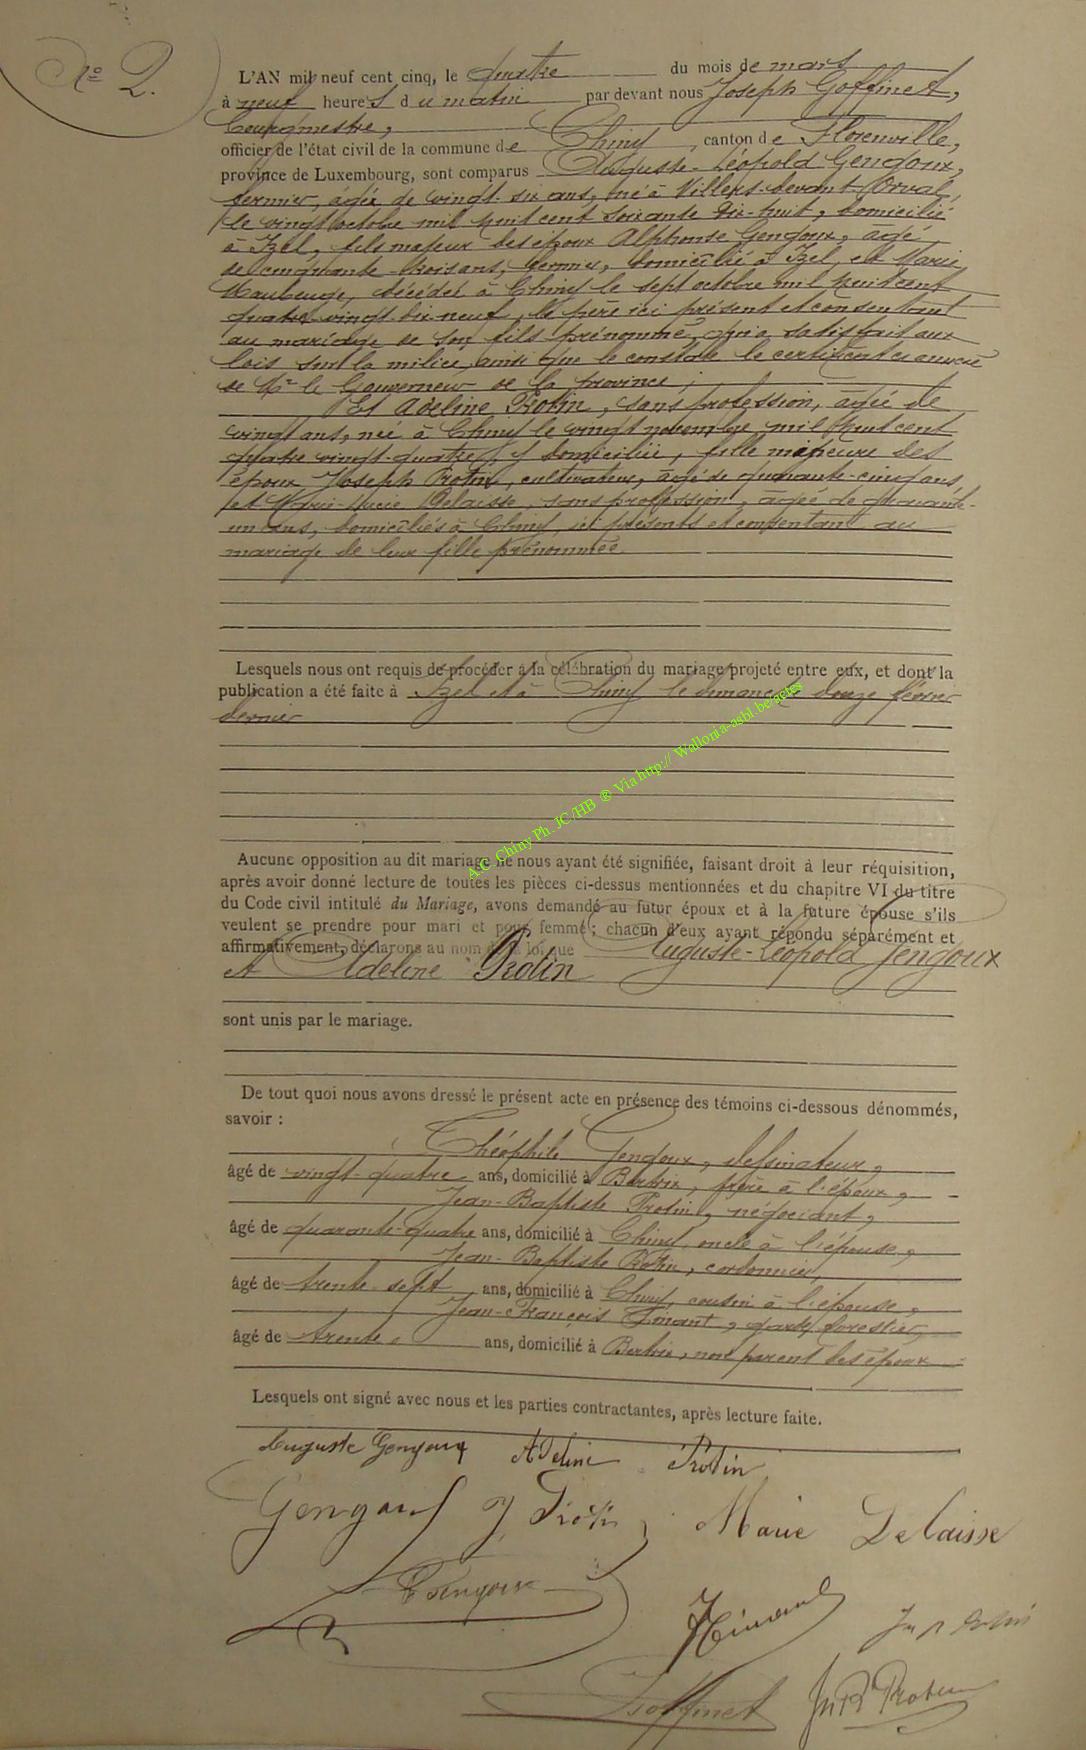 N° 2.
L'AN mil neuf cent cinq, le quatre du mois de mars
à neuf heures du matin par devant nous Joseph Goffinet,
bourgmestre,
officier de l'état civil de la commune de Chiny, canton de Florenville,
province de Luxembourg, sont comparus Auguste-Léopold Gengoux,
fermier, âgé de vingt-six ans, né à Villers-devant-Orval,
le vingt octobre mil huit cent soixante dix-huit, domicilié
à Izel, fils majeur des époux Alphonse Gengoux, âgé
de cinquante-trois ans, fermier, domicilié à Izel, et Marie
Maubeuge, décédée à Chiny le sept octobre mil huit cent
quatre-vingt-dix-neuf, le père ici présent et consentant
au mariage de son fils prénommé, qui a satisfait aux
lois sur la milice, ainsi que le constate le certificat
de Mr le Gouverneur de la province ;
Et Adeline Protin, sans profession, âgée de
vingt ans, née à Chiny le vingt novembre mil huit cent
quatre vingt-quatre, y domiciliée, fille majeure des
époux Joseph Protin, cultivateur, âgé de quarante-cinq ans,
et Marie-Lucie Delaisse, sans profession, âgée de quarante-
un ans, domiciliés à Chiny, ici présents et consentant au
mariage de leur fille prénommée.
Lesquels nous ont requis de procéder à la célébration du mariage projeté entre eux, et dont la
publication a été faite à Izel et à Chiny le dimanche douze février
dernier
A.C. Chiny Ph. JC/HB ® Via http:// Wallonia-asbl.be/actes
Aucune opposition au dit mariage ne nous ayant été signifiée, faisant droit à leur réquisition,
après avoir donné lecture de toutes les pièces ci-dessus mentionnées et du chapitre VI du titre
du Code civil intitulé du Mariage, avons demandé au futur époux et à la future épouse s'ils
veulent se prendre pour mari et pour femme ; chacun d'eux ayant répondu séparément et
affirmativement, déclarons au nom de la loi, que Auguste-Léopold Gengoux
et Adeline Protin
sont unis par le mariage.
De tout quoi nous avons dressé le présent acte en présence des témoins ci-dessous dénommés,
savoir :
Théophile Gengoux, dessinateur,
âgé de vingt-quatre ans, domicilié à Bertrix, frère à l'époux,
Jean-Baptiste Protin, négociant,
âgé de quarante-quatre ans, domicilié à Chiny, oncle à l'épouse,
Jean-Baptiste Protin, cordonnier,
âgé de trente-sept ans, domicilié à Chiny, cousin à l'épouse,
Jean-François garde forestier,
âgé de trente ans, domicilié à Bertrix, non parent des époux
Lesquels ont signé avec nous et les parties contractantes, après lecture faite.
Auguste Gengoux Adeline Protin
Gengoux J. Protin Marie Delaisse
Gengoux
Goffinet Jn Bte Protin